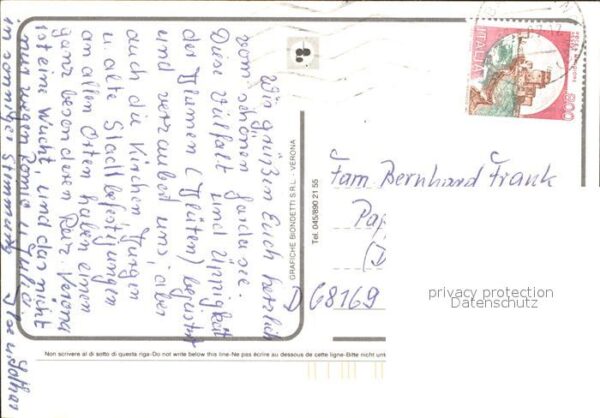 Wir grüßen Euch herzlich
vom schönen Gardasee.
Diese Vielfalt und Üppigkeit
der Blumen (Blüten) begeistert
und verzaubert uns, aber
auch die Kirchen, Burgen
u. alte Stadtbefestigungen
an allen Orten haben einen
ganz besonderen Reiz. Verona
ist eine Wucht, und das nicht
nur wegen Romeo u. Julia.
In sonniger Stimmung
Lothar
GRAFICHE BIONDETTI S.R.L. - VERONA
Tel. 045/890 21 55
ITALIA
800
Fam. Bernhard Frank
Pap
(D
D 68169
privacy protection
Datenschutz
Non scrivere al di sotto di questa riga-Do not write below this line-Ne pas écrire au dessous de cette ligne-Bitte nicht unt